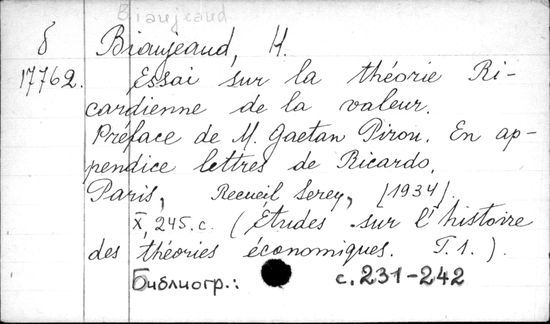 Biaujeaud
б Biaujeaud, H.
17762. Essai sur la théorie Ri-
cardienne de la valeur.
Préface de M. Gaetan Pirou. En ap-
pendice lettres de Ricardo.
Paris, Recueil Sirey, [1934].
X, 245.c. (Études sur l'histoire
des théories économiques. T.1.).
Библиогр.: с.231-242